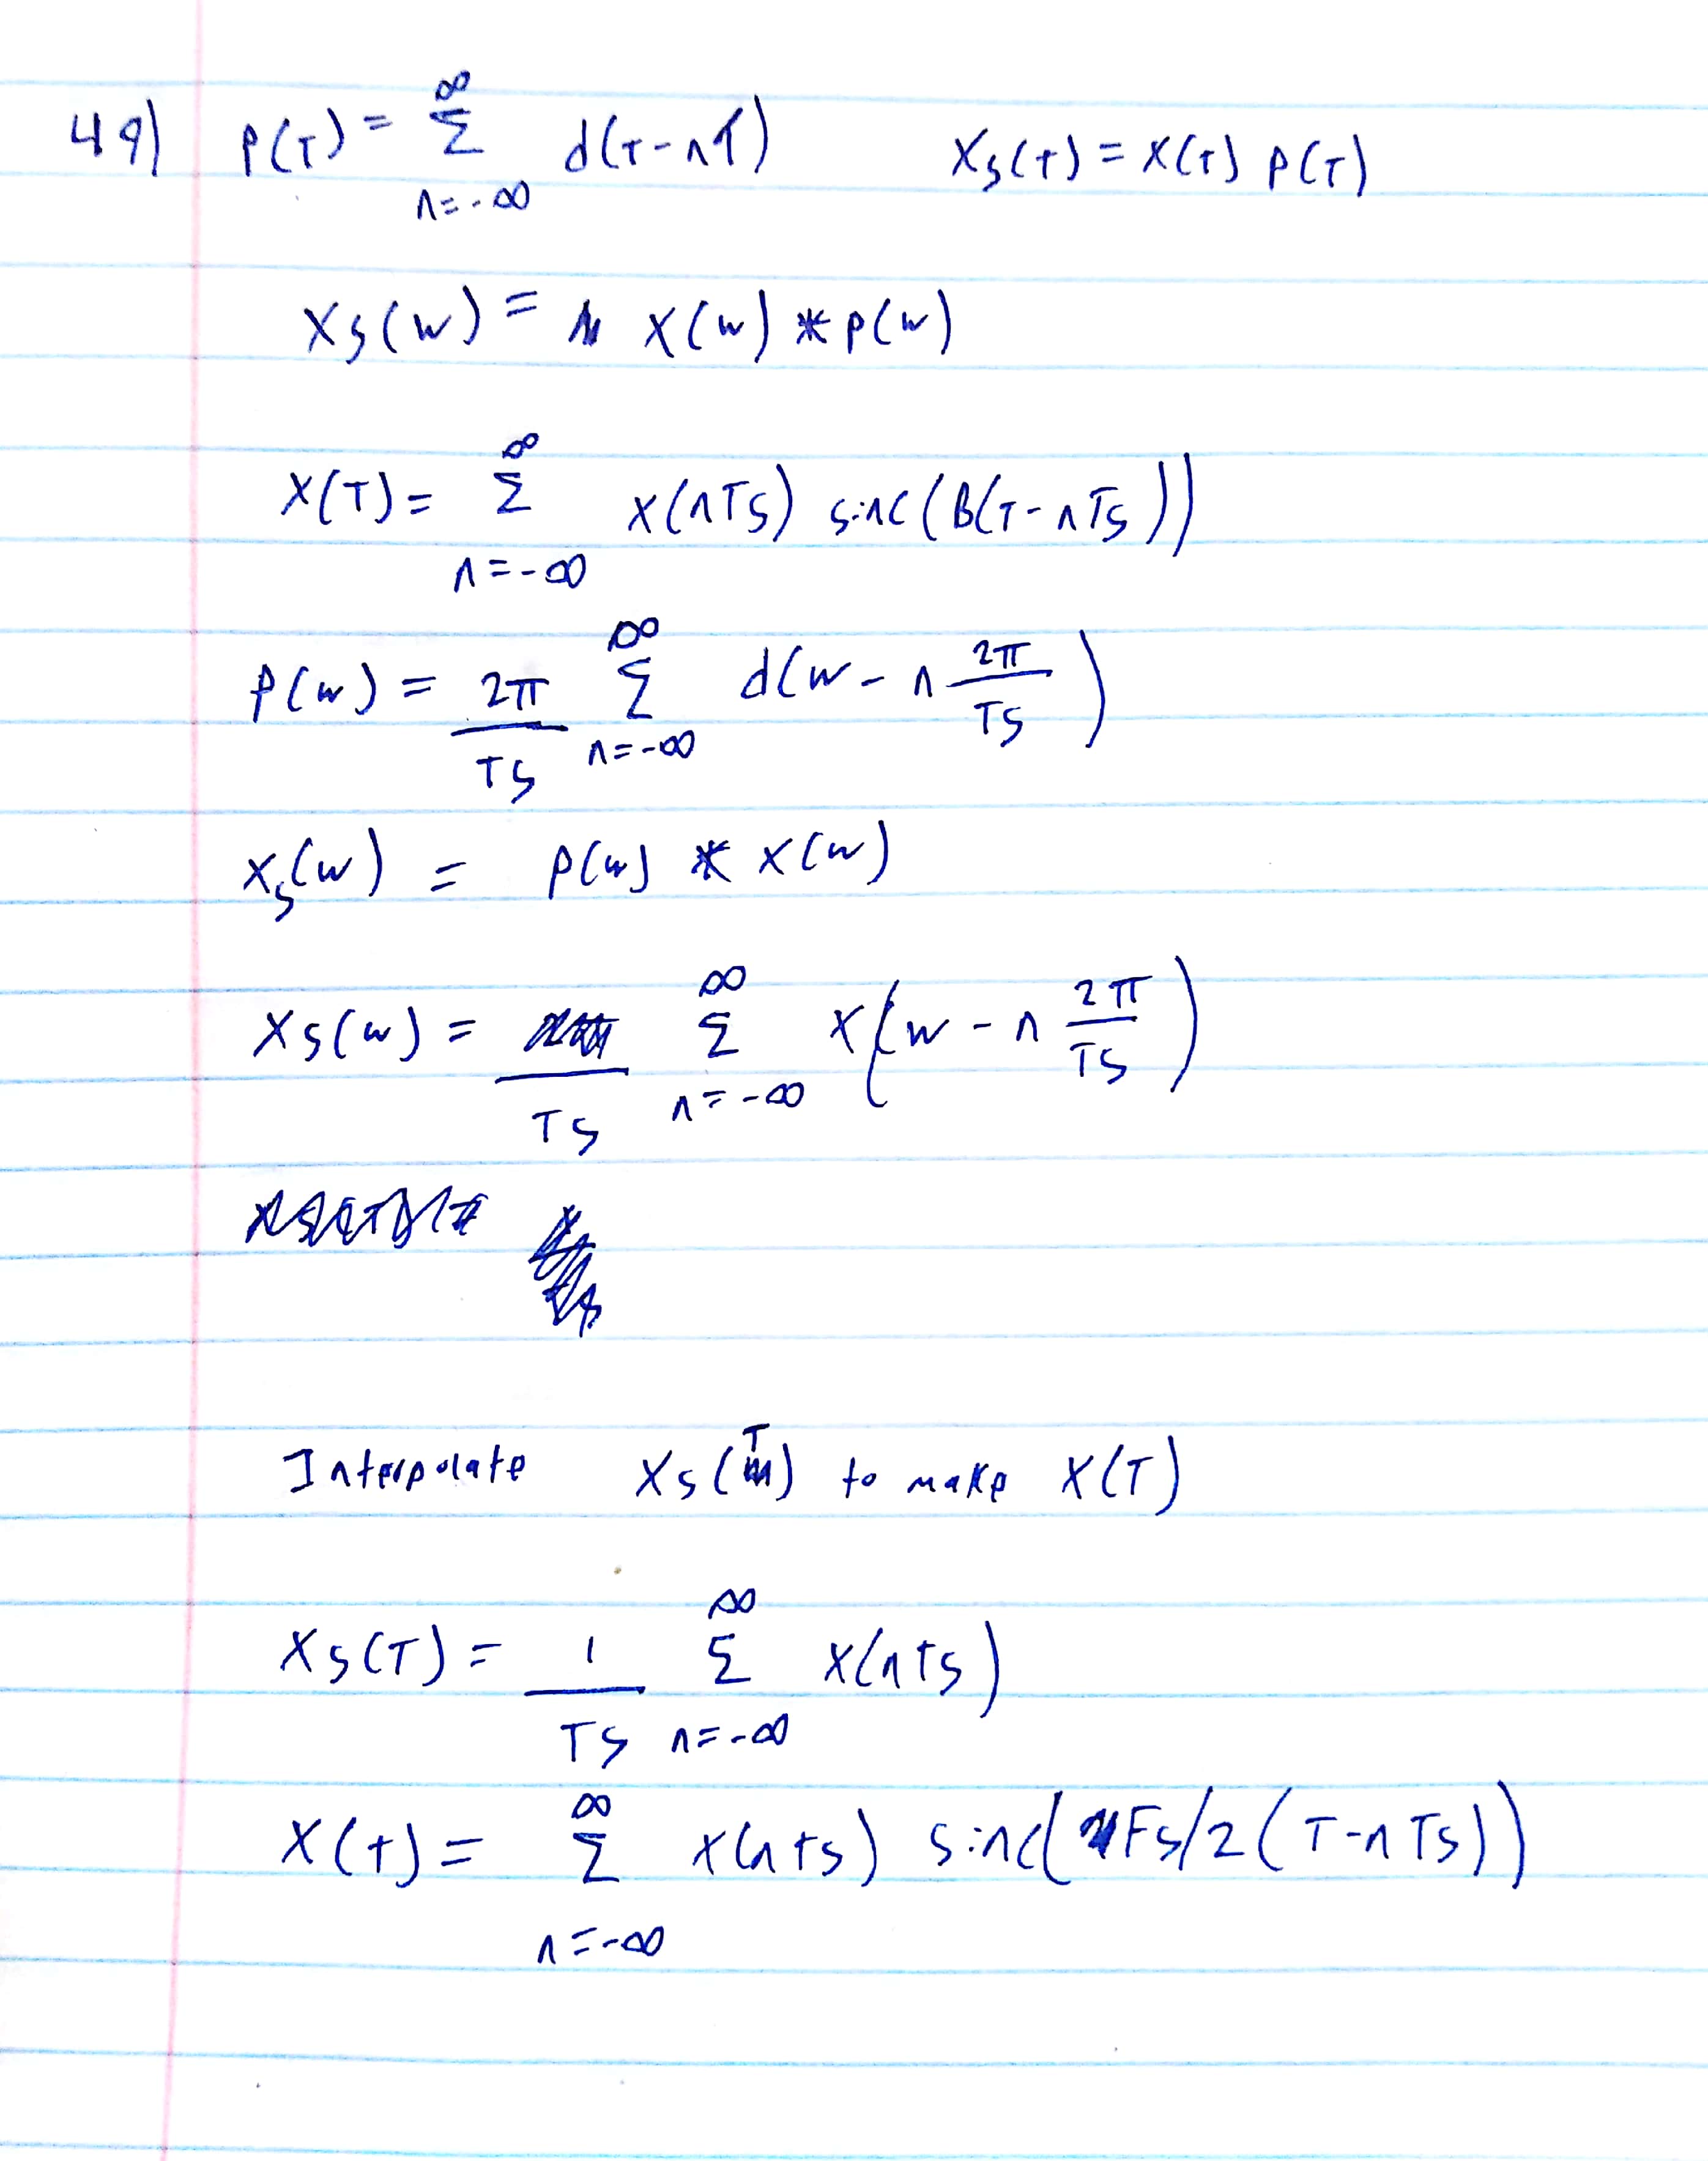 49) P(T) = ∞ Σ n=-∞ d(T-nT) Xs(t) = X(T) P(T)
Xs(w) = X(w) * P(w)
X(T) = ∞ Σ n=-∞ X(nTs) sinc(B(T-nTs))
P(w) = 2π/Ts ∞ Σ n=-∞ d(w-n 2π/Ts)
Xs(w) = P(w) * X(w)
Xs(w) = /Ts ∞ Σ n=-∞ X(w-n 2π/Ts)
Interpolate Xs(T) to make X(T)
Xs(T) = 1/Ts ∞ Σ n=-∞ X(nts)
X(t) = ∞ Σ n=-∞ X(nts) sinc(Fs/2(T-nTs))